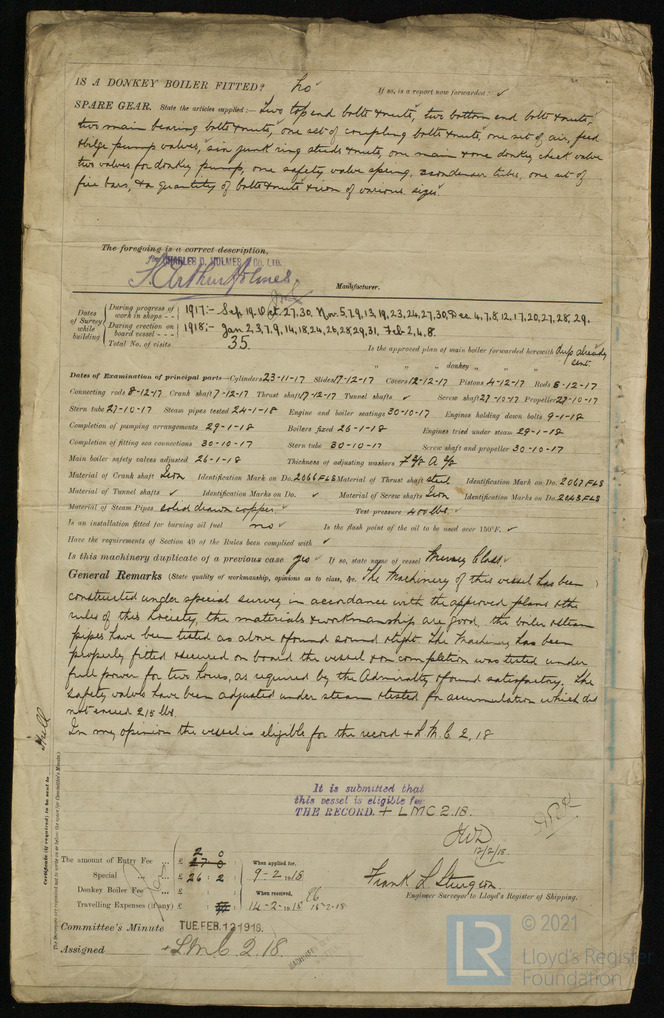 IS A DONKEY BOILER FITTED? No If so, is a report now forwarded? ✓
SPARE GEAR. State the articles supplied:— Two top end bolts & nuts, two bottom end bolts & nuts,
two main bearing bolts & nuts, one set of coupling bolts & nuts, one set of air, feed
& bilge pump valves, six junk ring studs & nuts, one main & one donkey check valve
two valves for donkey pump, one safety valve spring, condenser tubes, one set of
fire bars, & a quantity of bolts & nuts & iron of various sizes.
The foregoing is a correct description,
for CHARLES D. HOLMES & CO. LTD.
F. Arthur Holmes. Manufacturer.
Dates of Survey while building
During progress of work in shops - - 1917:- Sep. 19. Oct. 27, 30. Nov. 5, 7, 9, 13, 19, 23, 24, 27, 30, Dec. 4, 7, 8, 12, 17, 20, 27, 28, 29.
During erection on board vessel - - - 1918:- Jan 2, 3, 7, 9, 14, 18, 24, 26, 28, 29, 31, Feb. 2, 4, 8.
Total No. of visits 35.
Is the approved plan of main boiler forwarded herewith already sent
" " " donkey " "
Dates of Examination of principal parts—Cylinders 23-11-17 Slides 17-12-17 Covers 12-12-17 Pistons 4-12-17 Rods 8-12-17
Connecting rods 8-12-17 Crank shaft 7-12-17 Thrust shaft 17-12-17 Tunnel shafts ✓ Screw shaft 27-10-17 Propeller 27-10-17
Stern tube 27-10-17 Steam pipes tested 24-1-18 Engine and boiler seatings 30-10-17 Engines holding down bolts 9-1-18
Completion of pumping arrangements 29-1-18 Boilers fixed 26-1-18 Engines tried under steam 29-1-18
Completion of fitting sea connections 30-10-17 Stern tube 30-10-17 Screw shaft and propeller 30-10-17
Main boiler safety valves adjusted 26-1-18 Thickness of adjusting washers
Material of Crank shaft Iron Identification Mark on Do. 2066 FLS Material of Thrust shaft steel Identification Mark on Do. 2067 FLS
Material of Tunnel shafts ✓ Identification Marks on Do. ✓ Material of Screw shafts Iron Identification Marks on Do. 2043 FLS
Material of Steam Pipes solid drawn copper. ✓ Test pressure 400 lbs.
Is an installation fitted for burning oil fuel no ✓ Is the flash point of the oil to be used over 150°F. ✓
Have the requirements of Section 49 of the Rules been complied with ✓
Is this machinery duplicate of a previous case yes ✓ If so, state name of vessel Mersey Class. ✓
General Remarks (State quality of workmanship, opinions as to class, &c. The Machinery of this vessel has been
constructed under special survey in accordance with the approved plans & the
rules of this Society, the materials & workmanship are good, the boiler & steam
pipes have been tested as above & found sound & tight. The Machinery has been
properly fitted & secured on board the vessel & on completion was tested under
full power for two hours, as required by the Admiralty & found satisfactory. The
safety valves have been adjusted under steam & tested for accumulation which did
not exceed 215 lbs.
In my opinion the vessel is eligible for the record + L M C 2, 18
It is submitted that
this vessel is eligible for
THE RECORD. + LMC 2.18.
12/2/18.
Certificate (if required) to be sent to Hull
The amount of Entry Fee ... £ 2 : 0 : When applied for,
Special ... £ 26 : 2 : 9-2-18
Donkey Boiler Fee ... £ : : When received,
Travelling Expenses (if any) £ : : 14-2-18 15-2-18
Frank L Sturgeon.
Engineer Surveyor to Lloyd's Register of Shipping.
Committee's Minute TUE. FEB. 12 1918.
Assigned + L.M.C. 2.18.
© 2021
LR
Lloyd's Register
Foundation